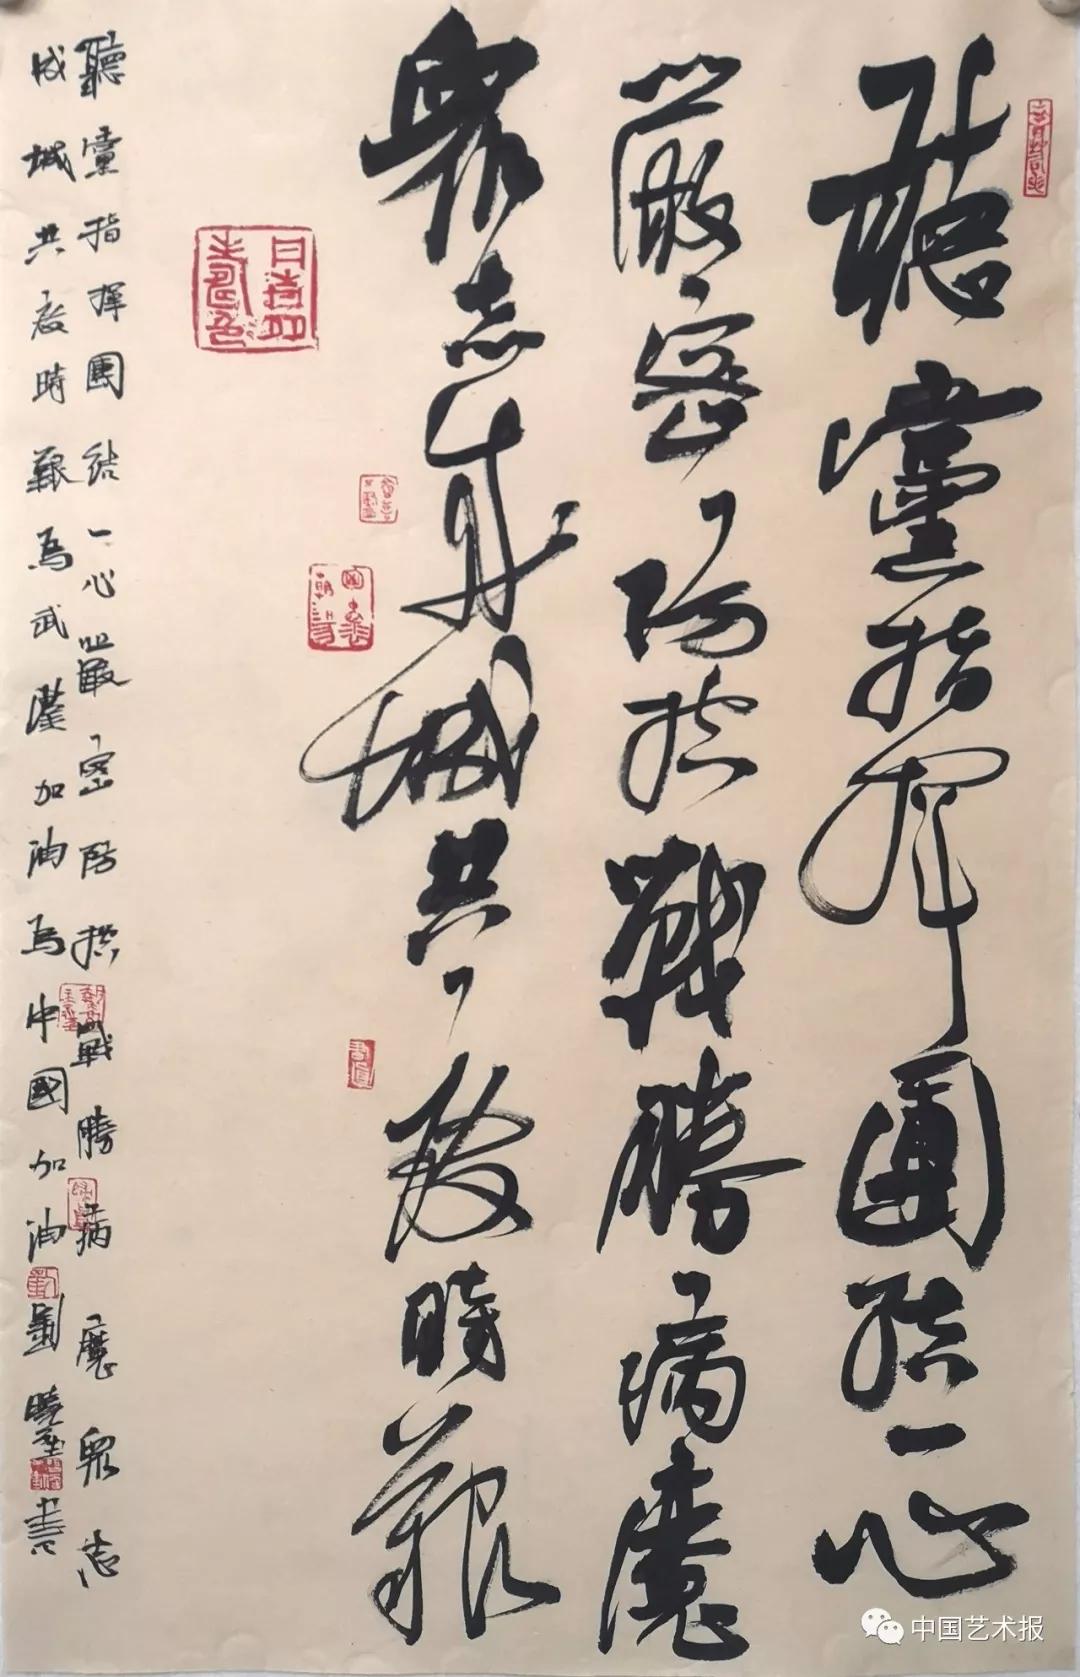 聽黨指揮團結一心
嚴密防控戰勝病魔
眾志成城共度時艱
聽黨指揮團結一心嚴密防控戰勝病魔眾志
成城共度時艱為武漢加油為中國加油劉曉書
中国艺术报